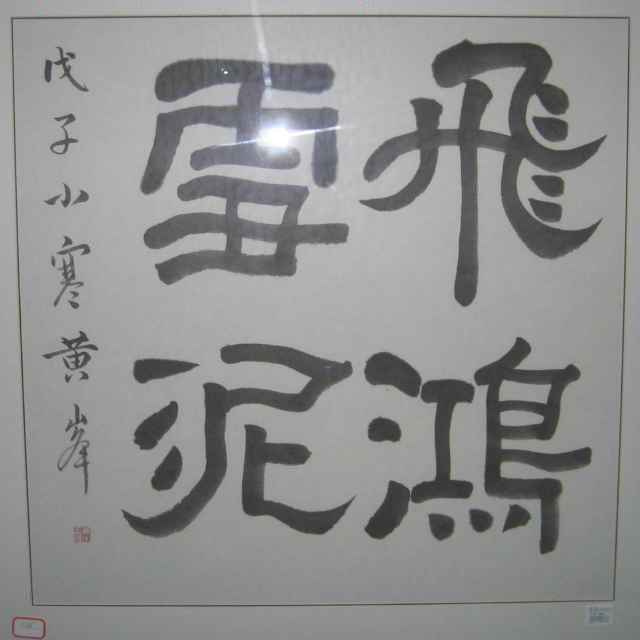 飛鴻
雪泥
戊子小寒黃峯